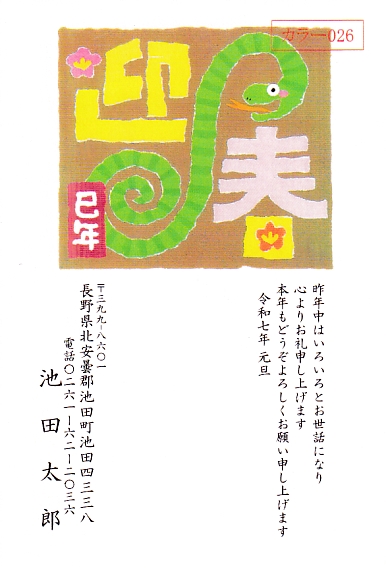 カラー026
迎春
巳年
昨年中はいろいろとお世話になり
心よりお礼申し上げます
本年もどうぞよろしくお願い申し上げます
令和七年 元旦
〒三九九-八六〇一
長野県北安曇郡池田町池田四三三八
電話〇二六一-六二-二〇三六
池田太郎